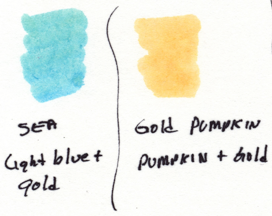 SEA
Light blue +
gold
Gold PUMPKIN
PUMPKIN + Gold